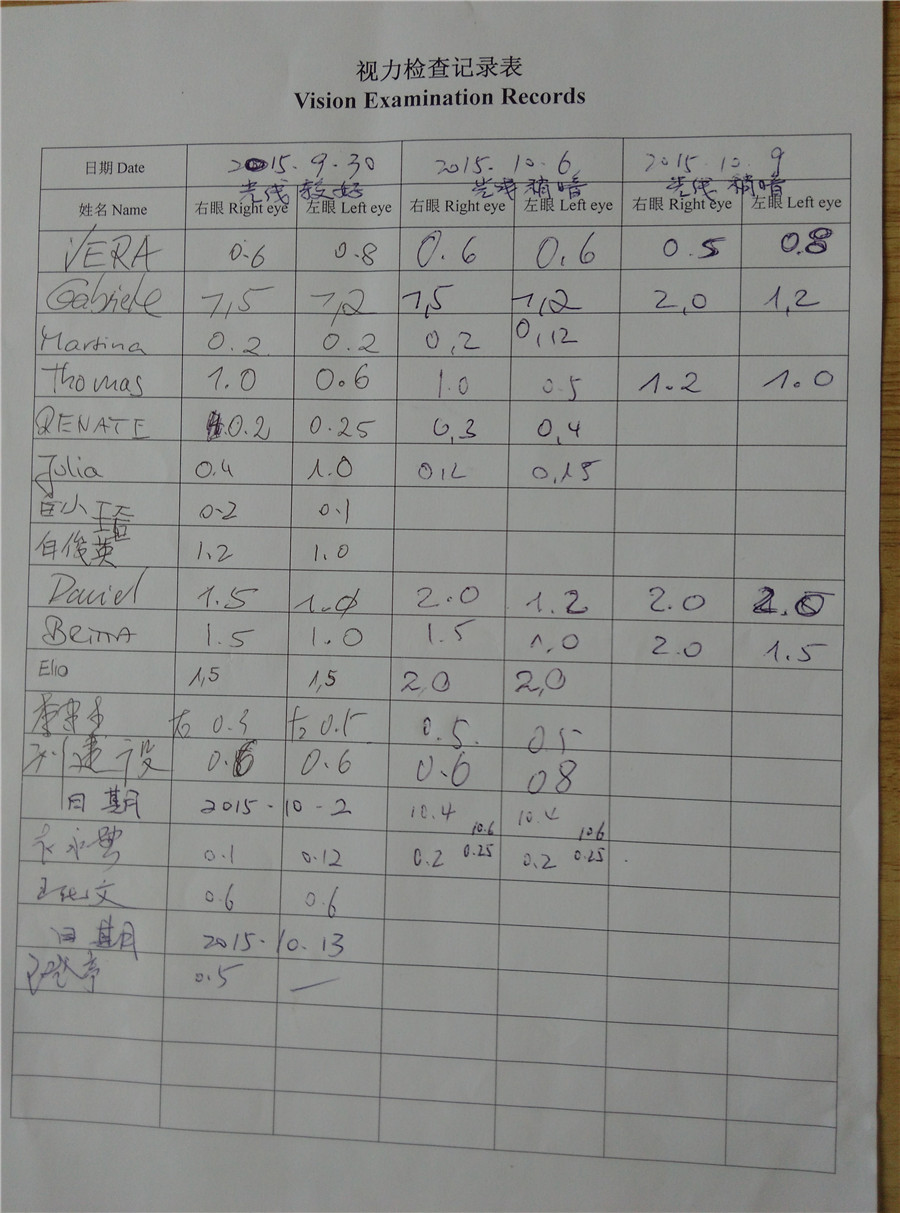 视力检查记录表
Vision Examination Records
日期 Date 2015.9.30 2015.10.6 2015.10.9
光线较好 光线稍暗 光线稍暗
姓名 Name 右眼 Right eye 左眼 Left eye 右眼 Right eye 左眼 Left eye 右眼 Right eye 左眼 Left eye
VERA 0.6 0.8 0.6 0,6 0.5 0.8
Gabriele 1,5 1,2 1,5 1,2 2,0 1,2
Martina 0.2 0.2 0,2 0,12
Thomas 1.0 0.6 1.0 0.5 1.2 1.0
RENATE 0.2 0.25 0,3 0,4
Julia 0.4 1.0 0,15
0.2 0.1
白俊英 1.2 1.0
Daniel 1.5 1.0 2.0 1.2 2.0
BRITTA 1.5 1.0 1.5 1,0 2.0 1.5
Elio 1,5 1,5 2,0 2,0
右 0.3 左 0.5 0.5 0.5
刘建设 0.6 0.6 0.6 0.8
日期 2015-10-2 10.4 10.4
10.6 10.6
0.1 0.12 0.2 0.25 0.2 0.25
0.6 0.6
日期 2015-10.13
0.5 —